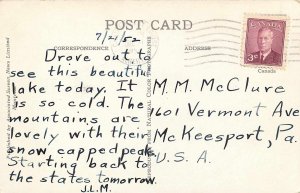 POST CARD
7/21/52
CORRESPONDENCE
ADDRESSE
CANADA
3¢
Canada
Drove out to
see this beautiful
lake today. It
is so cold. The
mountains are
lovely with their
snow capped peak
Starting back to
the states tomorrow.
J.L.M.
M.M. McClure
1601 Vermont Ave
McKeesport, Pa.
U.S.A.